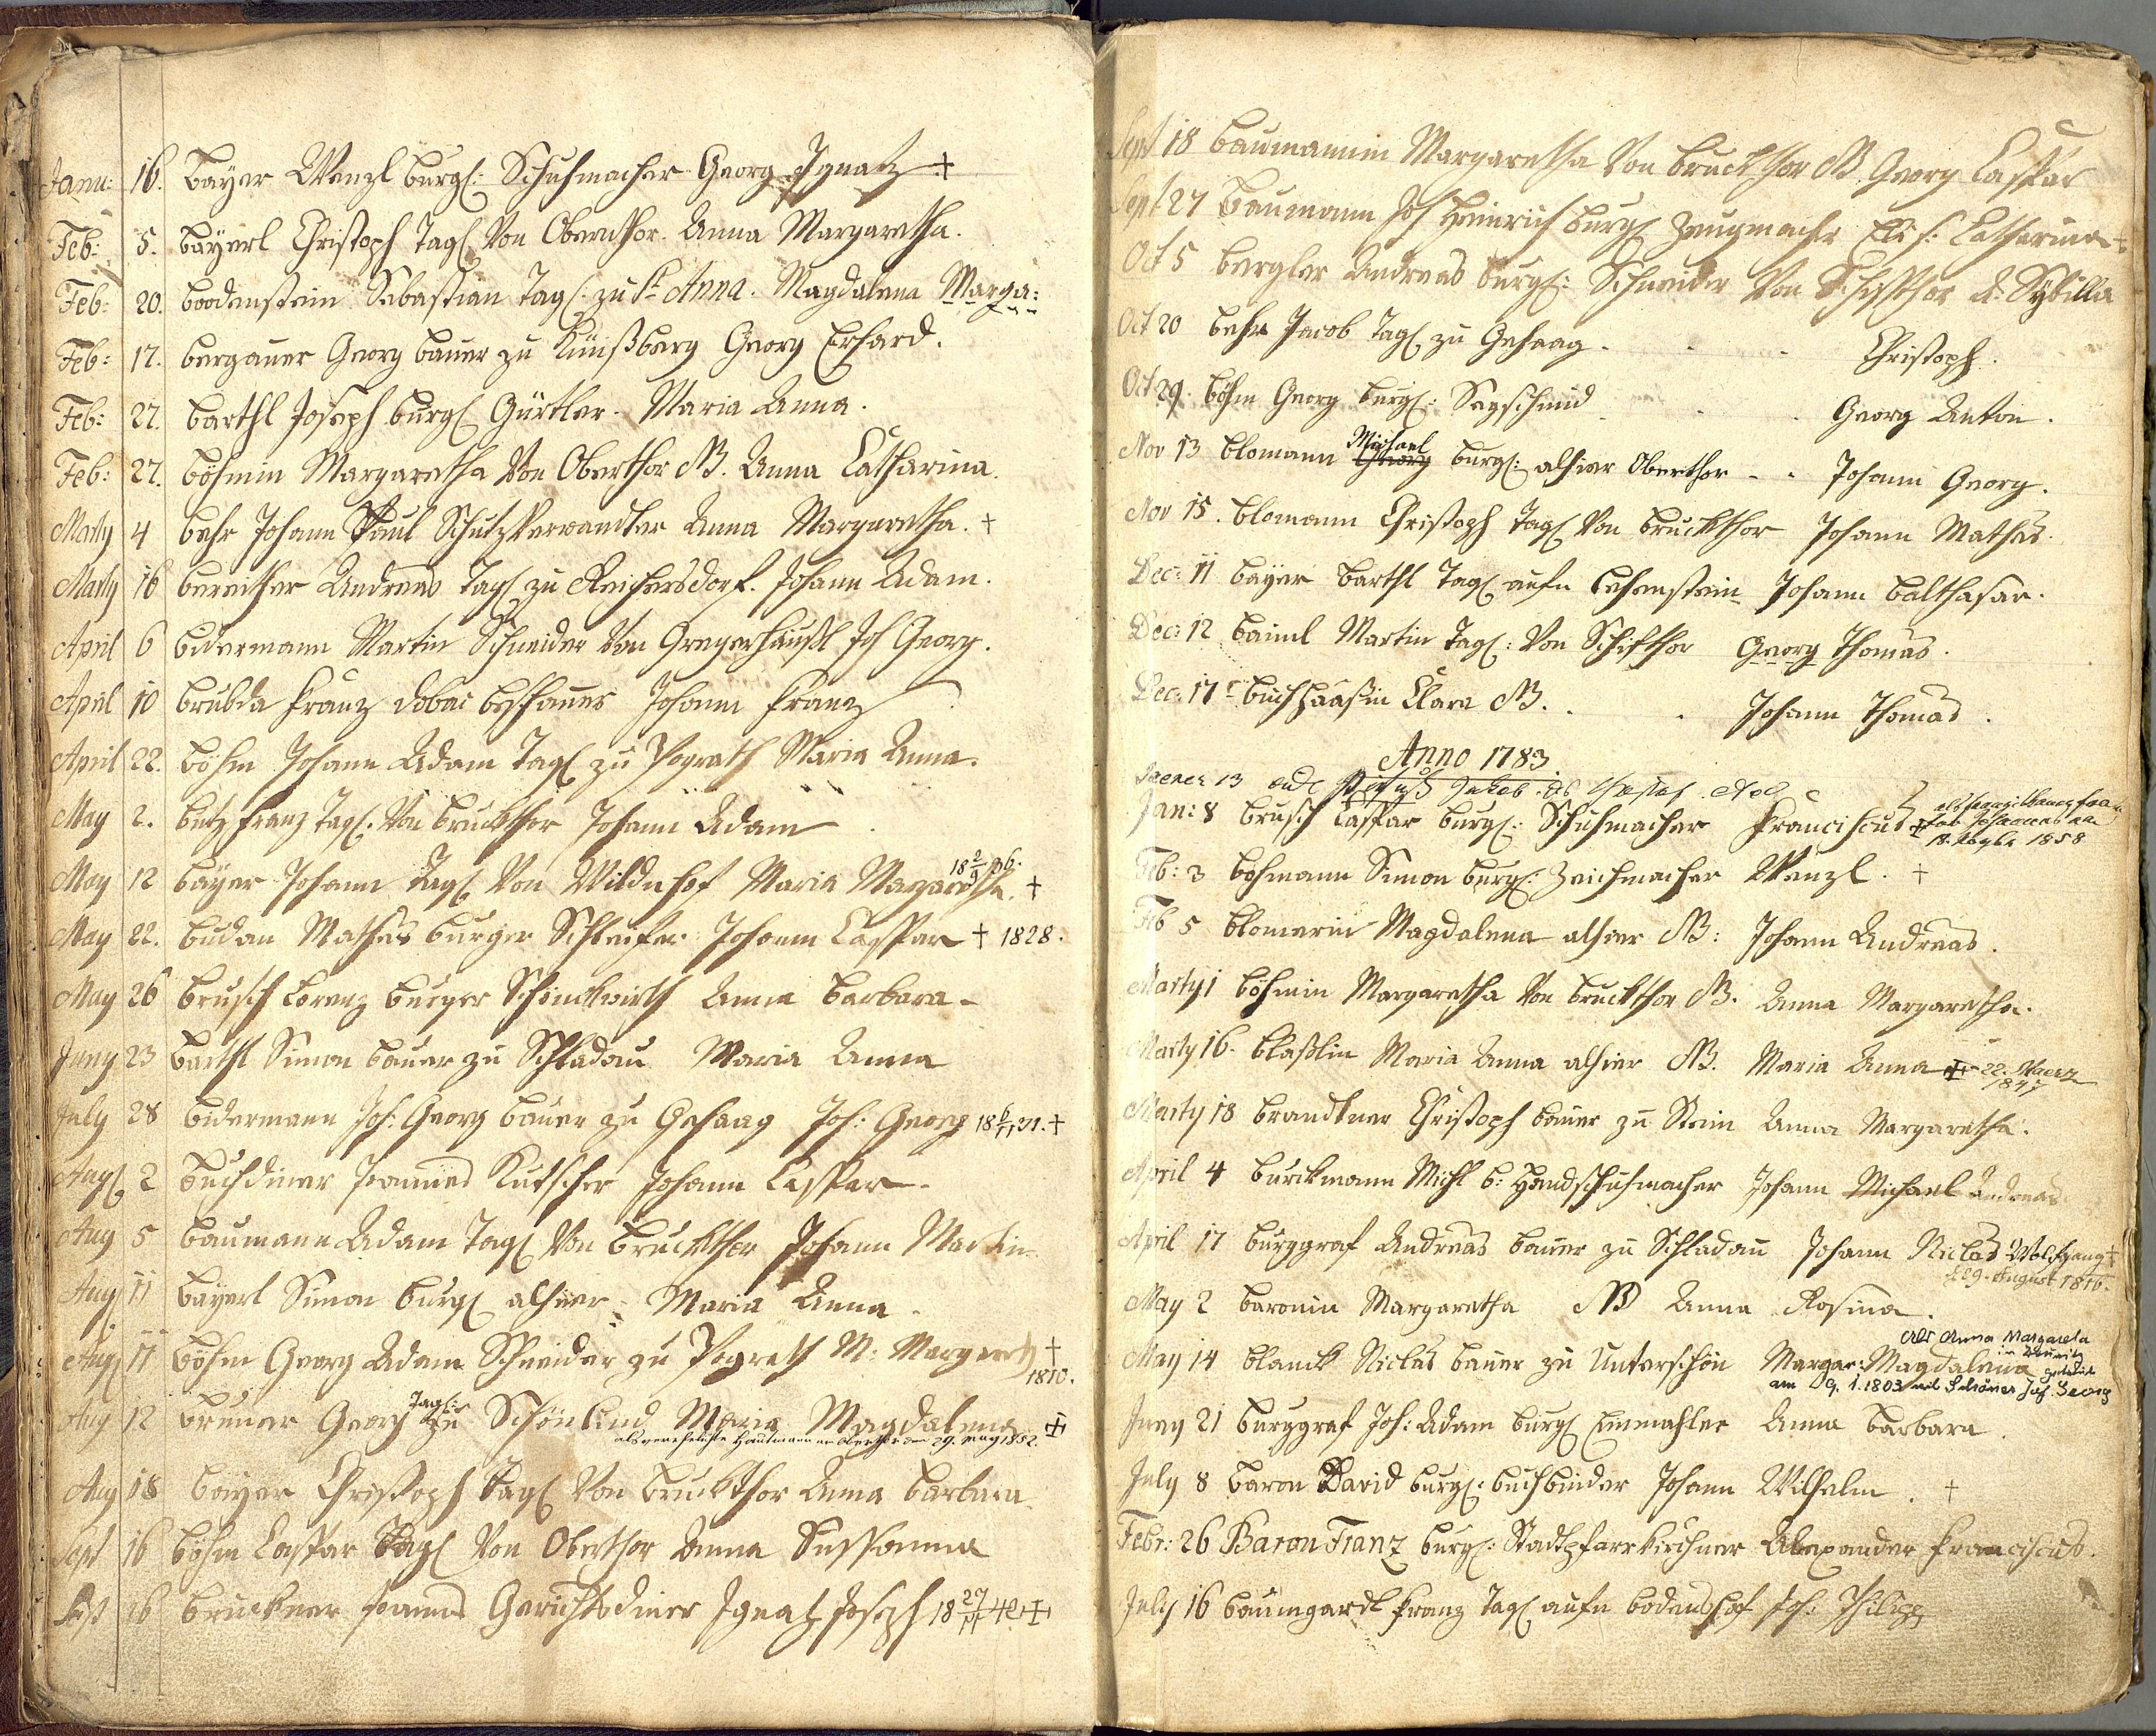 Janu: 16. Bayer Wenzl burgl: Schuhmacher Georg Ignatz +
Feb: 5. Bayerl Christoph Tagl Von Oberthor. Anna Margaretha.
Feb: 20. Boodenstein Sebastian Tagl. zu St Anna. Magdalena Marga:
Feb: 17. Bergauer Georg Bauer zu Künßberg Georg Erhard.
Feb: 27. Barthl Joseph burgl Gürtler. Maria Anna.
Feb: 27. Böhmin Margaretha Von Oberthor NB. Anna Catharina.
Marty 4 Behr Johann Paul Schutzverwandter Anna Margaretha. +
Marty 16 Bereither Andreas Tagl zu Reichersdorf. Johann Adam.
April 6 Bidermann Martin Schneider Von Gregerhäußl Joh Georg.
April 10 Franz Johann Franz
April 22. Böhm Johann Adam Tagl zu Pograth Maria Anna.
May 2. Butz Franz Tagl. Von Bruckthor Johann Adam.
May 12 Bayer Johann Tagl Von Wildnhof Maria Margaretha. +
May 22. Budan Mathias burger Schleifer Johann Caspar + 1828.
May 26 Brusch Lorenz burger Schenckwirth Anna Barbara.
Juny 23 Barthl Simon Bauer zu Schladau Maria Anna
July 28 Bidermann Joh: Georg Bauer zu Gehaag Joh: Georg 18 6/11 31. +
Augl 2 Buchdiner Joannes Kutscher Johann Caspar.
Aug 5 Baumann Adam Tagl Von Bruckthor Johann Martin
Aug 11 Bayerl Simon burgl alhier. Maria Anna.
Augl 11 Böhm Georg Adam Schneider zu Pograth M: Margareth +
1810.
Aug 12 Bruner Georg Tagl: zu Schönlind Maria Magdalena +
als verehelichte Hautmann am Oberthor den 29. May 1852.
Aug 18 Bayer Christoph Tagl Von Bruckthor Anna Barbara
Sept 16 Böhm Caspar Tagl Von Oberthor Anna Susanna
Sept 26 Bruckner Joannes Gerichtsdiner Ignatz Joseph 18 27/11 42 +
Sept 18 Baumannin Margaretha Von Bruckthor NB. Georg Caspar
Sept 27 Baumann Joh Heinrich burgl Zeugmacher Elis: Catharina +
Oct 5 Bergler Andreas burgl: Schneider Von Schifthor A: Sybilla
Oct 20 Behr Jacob Tagl zu Gehaag. Christoph.
Oct 29. Böhm Georg burgl: Sagschmid Georg Anton.
Nov 13 Blomann Michael burgl: alhier Oberthor - - Johann Georg.
Nov 15. Blomann Christoph Tagl Von Bruckthor Johann Mathias.
Dec: 11 Bayer Barthl Tagl aufn Lehenstein Johann Balthasar.
Dec: 12 Baiml Martin Tagl: Von Schifthor Georg Thomas.
Dec: 17 Buchhäaßin Clara NB. Johann Thomas.
Anno 1783
Jaener 13 Jakob
Jan: 8 Brusch Caspar burgl: Schuhmacher Franciscus +
1858
Feb: 3 Bohmann Simon burgl: Zeichmacher Wenzl. +
Feb 5 Blomerin Magdalena alhier NB: Johann Andreas.
Marty 1 Böhmin Margaretha Von Bruckthor NB. Anna Margaretha.
Marty 16. Blaßlin Maria Anna alhier NB. Maria Anna + 22. Maerz
1847
Marty 18 Brandtner Christoph Bauer zu Stein Anna Margaretha.
April 4 Burckmann Michl b: Handschuhmacher Johann Michael Andreas
April 17 Burggraf Andreas Bauer zu Schladau Johann Niclas Wolfgang +
29. August 1816.
May 2 Baronin Margaretha NB Anna Rosina.
Als Anna Margareta
May 14 Blanck Niclas Bauer zu Unterschön Margar: Magdalena getraut
am 9. 1. 1803 mit Schöner Joh. Georg
Juny 21 Burggraf Joh: Adam burgl Einmahler Anna Barbara.
July 8 Baron David burgl: Buchbinder Johann Wilhelm. +
Febr: 26 Baron Franz burgl: Stadtpfarrkirchner Alexander Franciscus.
July 16 Baumgardl Franz Tagl aufn Bodenshof Joh: Philipp